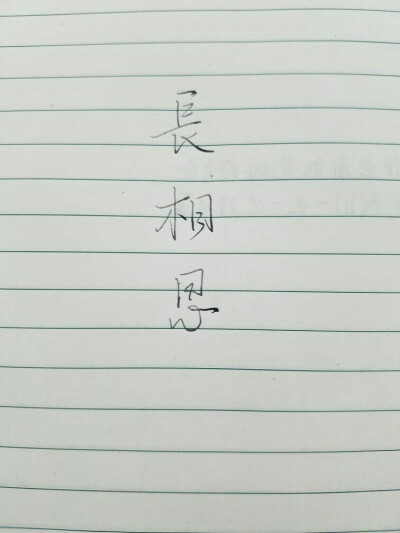 長相思